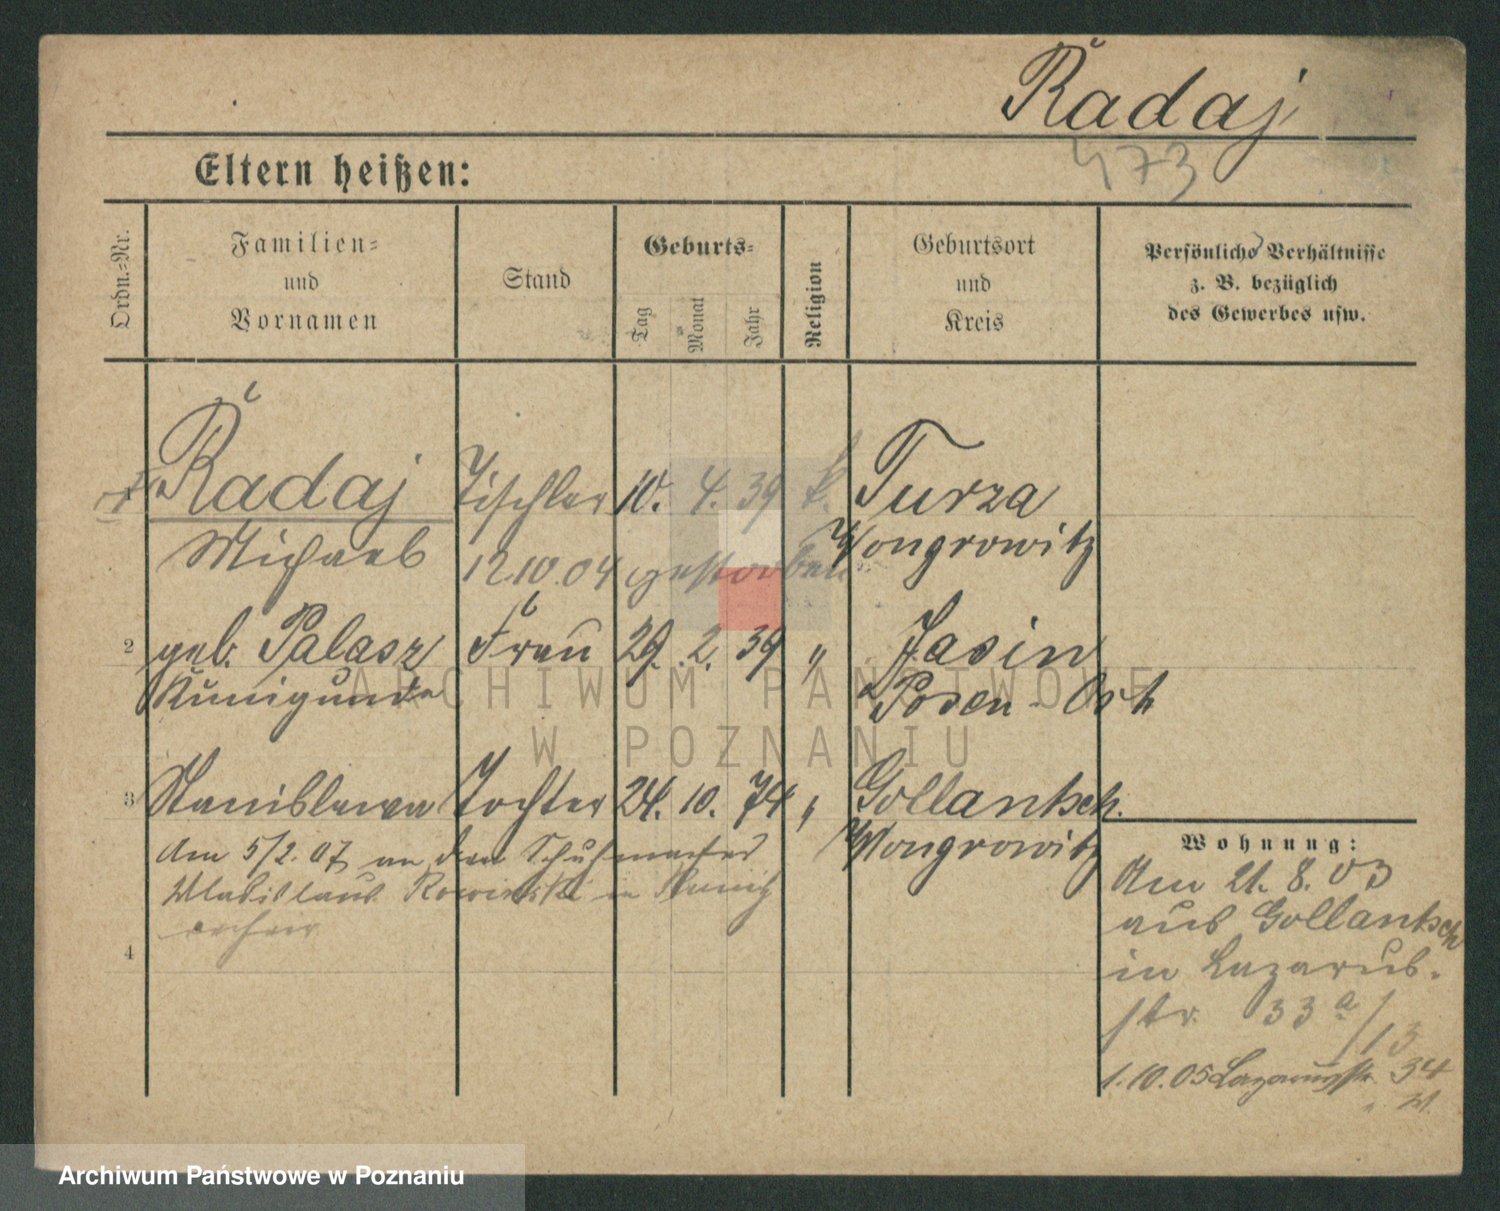 Radaj
473
Eltern heißen:
Ordn.-Nr.
Familien-
und
Vornamen
Stand
Geburts-
Tag
Monat
Jahr
Religion
Geburtsort
und
Kreis
Persönliche Verhältnisse
z. B. bezüglich
des Gewerbes usw.
Radaj Tischler 10. 4. 39 k. Turza
Michael 12.10.04 gestorben Wongrowitz
2 geb. Palasz Frau 29. 2. 39 " Jasin
Kunigunde Posen-Ost
3 Stanislawa Tochter 24. 10. 74 " Gollantsch.
Wongrowitz
Am 5/2. 07 an den Schuhmacher
Wladislaus in
4
Wohnung:
Am 21. 8. 03
aus Gollantsch
in Lazarus-
str. 33 a/13
1.10.05 Lazarusstr. 34
ARCHIWUM PAŃSTWOWE
W POZNANIU
Archiwum Państwowe w Poznaniu